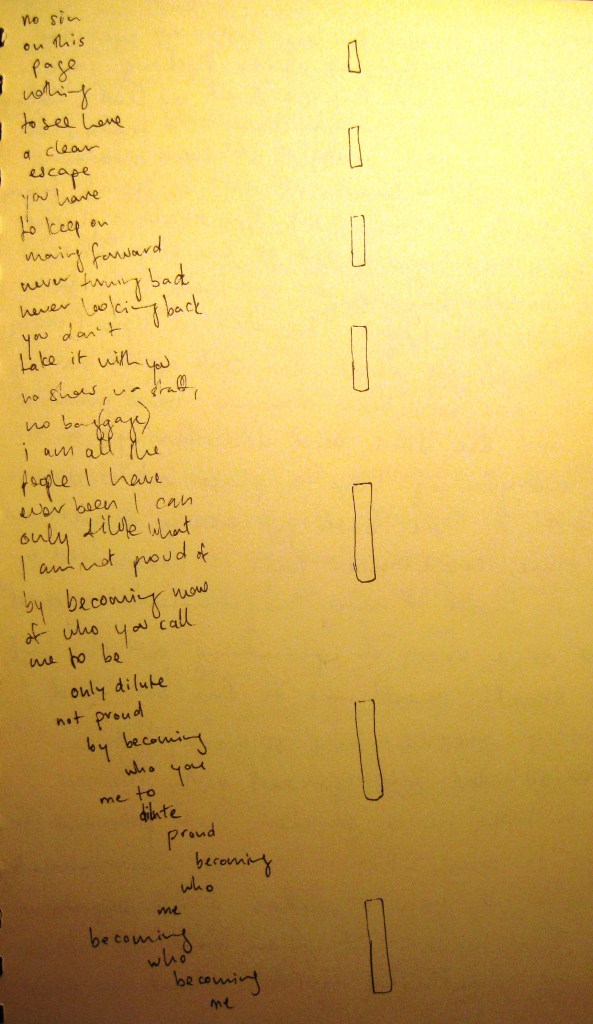 no sin
on this
page
nothing
to see here
a clean
escape
you have
to keep on
moving forward
never turning back
never looking back
you don't
take it with you
no show, no
no bag(gage)
i am all the
people I have
ever been I can
only dilute what
I am not proud of
by becoming more
of who you call
me to be
only dilute
not proud
by becoming
who you
me to
dilute
proud
becoming
who
me
becoming
who
becoming
me